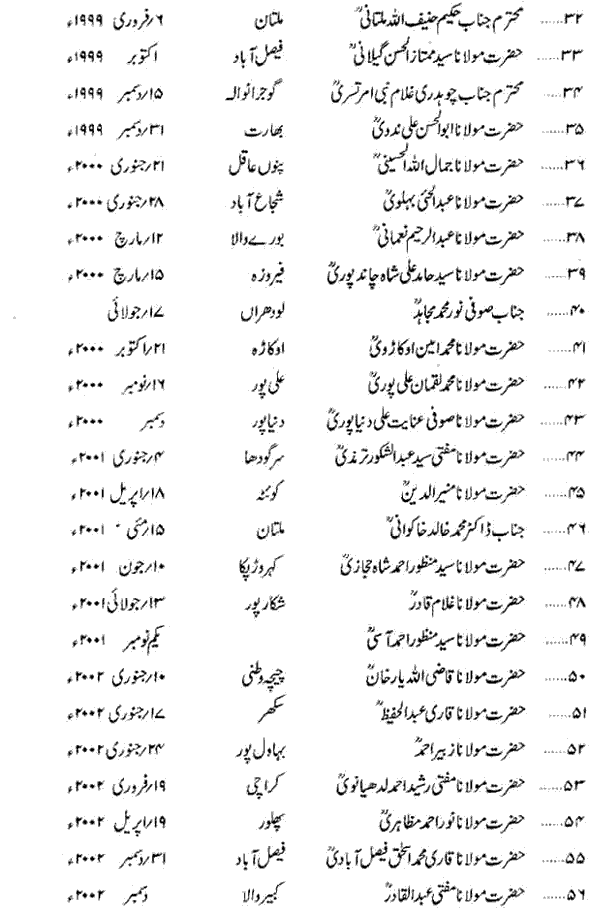 ۳۲...... محترم جناب حکیم حنیف اللہ ملتانیؒ ملتان ۶؍فروری ۱۹۹۹ء
۳۳...... حضرت مولانا سید ممتاز الحسن گیلانیؒ فیصل آباد اکتوبر ۱۹۹۹ء
۳۴...... محترم جناب چوہدری غلام نبی امرتسریؒ گوجرانوالہ ۱۵؍دسمبر ۱۹۹۹ء
۳۵...... حضرت مولانا ابوالحسن علی ندویؒ بھارت ۳۱؍دسمبر ۱۹۹۹ء
۳۶...... حضرت مولانا جمال اللہ الحسینیؒ پنوں عاقل ۲۱؍جنوری ۲۰۰۰ء
۳۷...... حضرت مولانا عبدالحئی بہلویؒ شجاع آباد ۲۸؍جنوری ۲۰۰۰ء
۳۸...... حضرت مولانا عبدالرحیم نعمانیؒ بورے والا ۱۲؍مارچ ۲۰۰۰ء
۳۹...... حضرت مولانا سید حامد علی شاہ چاند پوریؒ فیروزہ ۱۵؍مارچ ۲۰۰۰ء
۴۰...... جناب صوفی نور محمد مجاہدؒ لودھراں ۱۷؍جولائی
۴۱...... حضرت مولانا محمد امین اوکاڑویؒ اوکاڑہ ۲۱؍اکتوبر ۲۰۰۰ء
۴۲...... حضرت مولانا محمد لقمان علی پوریؒ علی پور ۱۶؍نومبر ۲۰۰۰ء
۴۳...... حضرت مولانا صوفی عنایت علی دنیا پوریؒ دنیا پور دسمبر ۲۰۰۰ء
۴۴...... حضرت مولانا مفتی سید عبدالشکور ترمذیؒ سرگودھا ۴؍جنوری ۲۰۰۱ء
۴۵...... حضرت مولانا منیر الدینؒ کوئٹہ ۱۸؍اپریل ۲۰۰۱ء
۴۶...... جناب ڈاکٹر محمد خالد خاکوانیؒ ملتان ۱۵؍مئی ۲۰۰۱ء
۴۷...... حضرت مولانا سید منظور احمد شاہ حجازیؒ کہروڑپکا ۱۰؍جون ۲۰۰۱ء
۴۸...... حضرت مولانا غلام قادرؒ شکار پور ۱۳؍جولائی ۲۰۰۱ء
۴۹...... حضرت مولانا سید منظور احمد آسیؒ یکم نومبر ۲۰۰۱ء
۵۰...... حضرت مولانا قاضی اللہ یار خانؒ چیچہ وطنی ۱۰؍جنوری ۲۰۰۲ء
۵۱...... حضرت مولانا قاری عبدالحفیظؒ سکھر ۱۷؍جنوری ۲۰۰۲ء
۵۲...... حضرت مولانا زبیر احمدؒ بہاول پور ۲۴؍جنوری ۲۰۰۲ء
۵۳...... حضرت مولانا مفتی رشید احمد لدھیانویؒ کراچی ۱۹؍فروری ۲۰۰۲ء
۵۴...... حضرت مولانا نور احمد مظاہریؒ پھلور ۱۹؍اپریل ۲۰۰۲ء
۵۵...... حضرت مولانا قاری محمد اسحٰق فیصل آبادیؒ فیصل آباد ۳۱؍دسمبر ۲۰۰۲ء
۵۶...... حضرت مولانا مفتی عبدالقادرؒ کبیر والا دسمبر ۲۰۰۲ء